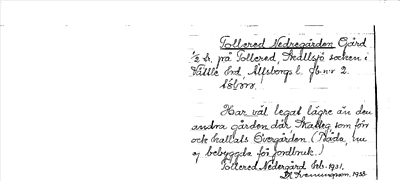 Tollered Nedregården Gård
1/2 h. på Tollered, Skallsjö socken i
Vättle hrd Älfsborgs l. Jb. nr 2.
Har väl legat lägre än den
andra gården där Skatteg som förr
ock kallats Övergården (Båda, nu
ej bebyggda för jordbruk.)
Tollered Nedergård beb. 1931,
1933